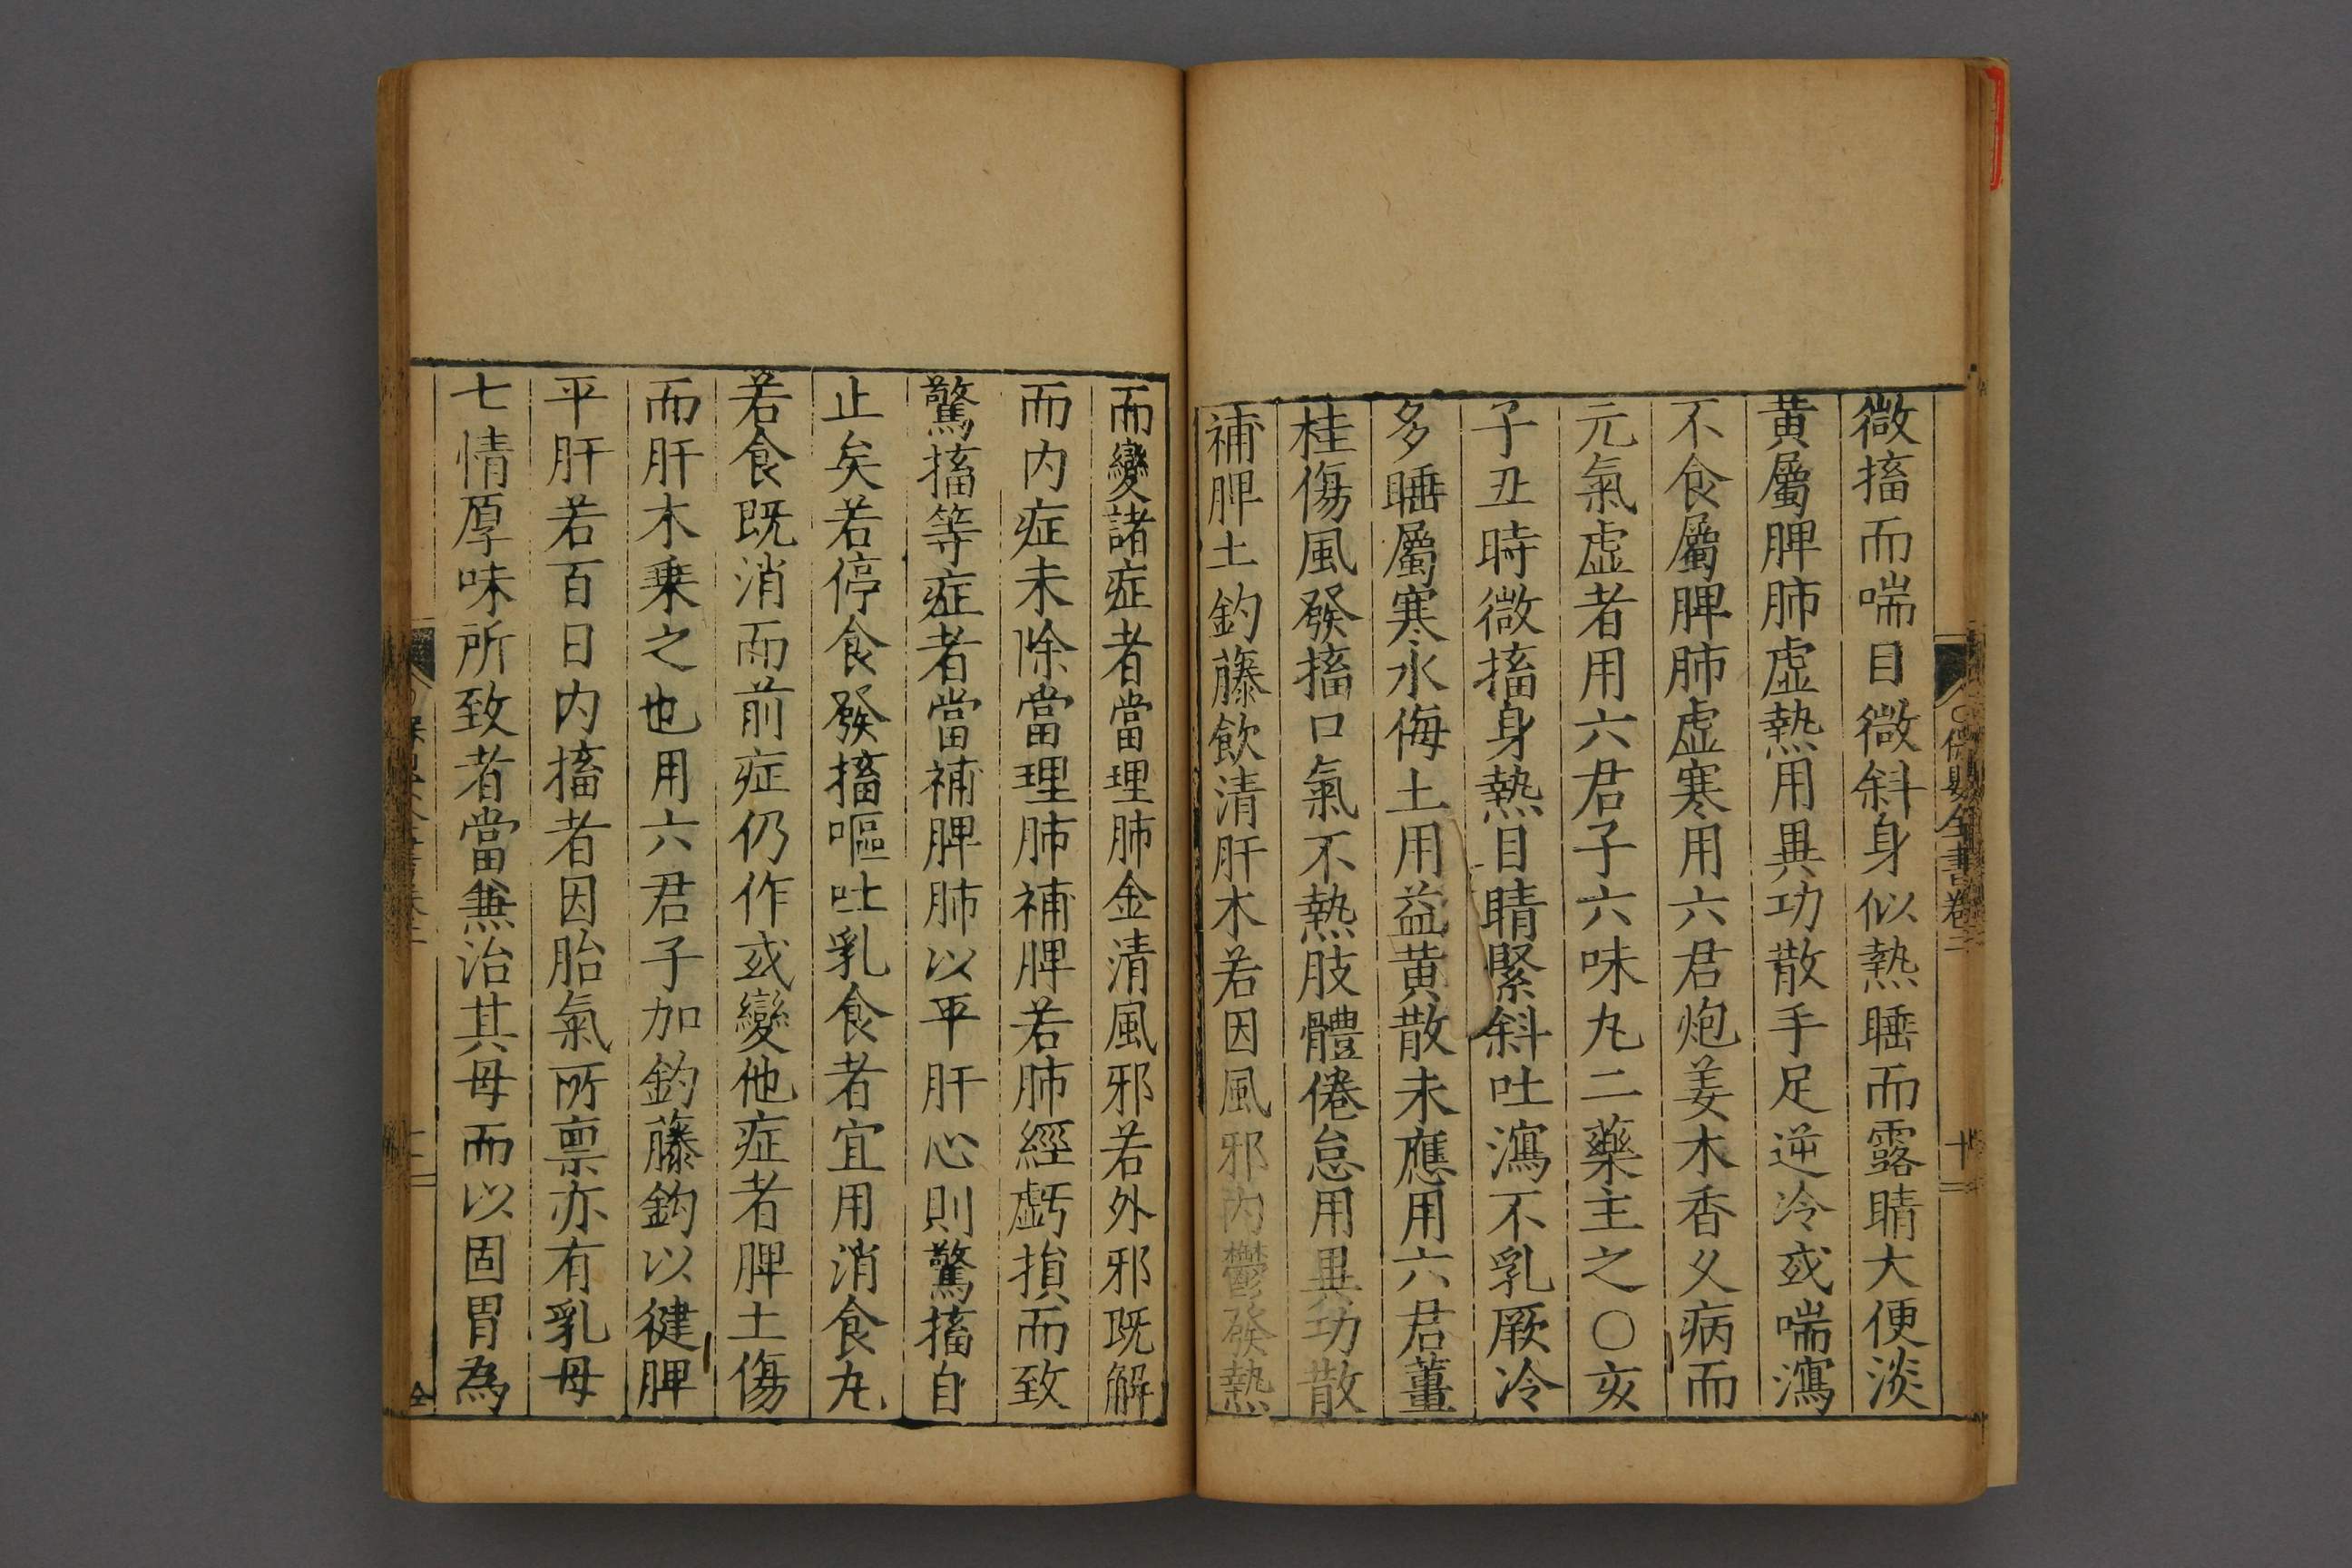 微搐而喘目微斜身似熱睡而露睛大便淡
黃屬脾肺虛熱用異功散手足逆冷或喘瀉
不食屬脾肺虛寒用六君炮姜木香久病而
元氣虛者用六君子六味丸二藥主之○亥
子丑時微搐身熱目睛緊斜吐瀉不乳厥冷
多睡屬寒水侮土用益黃散未應用六君薑
桂傷風發搐口氣不熱肢體倦怠用異功散
補脾土釣藤飲清肝木若因風邪內鬱發熱
而變諸症者當理肺金清風邪若外邪既解
而內症未除當理肺補脾若肺經虧損而致
驚搐等症者當補脾肺以平肝心則驚搐自
止矣若停食發搐嘔吐乳食者宜用消食丸
若食既消而前症仍作或變他症者脾土傷
而肝木乗之也用六君子加釣藤鈎以健脾
平肝若百日內搐者因胎氣所禀亦有乳母
七情厚味所致者當兼治其母而以固胃為
全書卷二
十